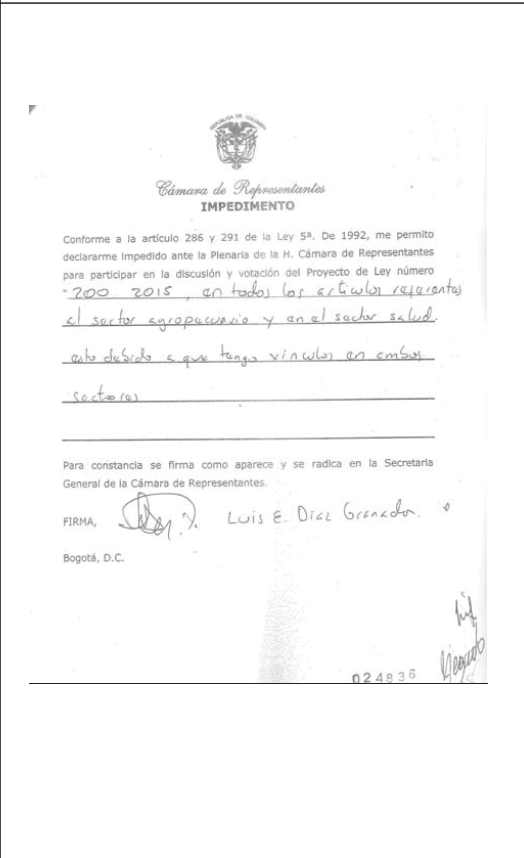 REPUBLICA DE COLOMBIA
Cámara de Representantes
IMPEDIMENTO
Conforme a la artículo 286 y 291 de la Ley 5ª. De 1992, me permito
declararme impedido ante la Plenaria de la H. Cámara de Representantes
para participar en la discusión y votación del Proyecto de Ley número
"200 2015, en todos los artículos referentes
al sector agropecuario y en el sector salud.
esto debido a que tengo vínculos en ambos
sectores
Para constancia se firma como aparece y se radica en la Secretaria
General de la Cámara de Representantes.
FIRMA, Luis E. Diaz Granados
Bogotá, D.C.
Negado
024836